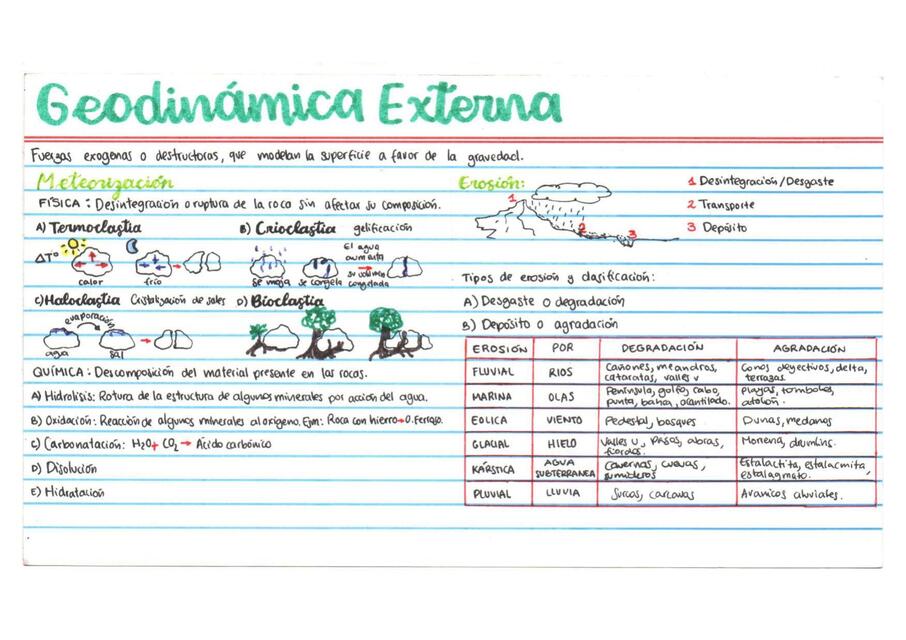 Geodinámica Externa
Fuerzas exogenas o destructoras, que modelan la superficie a favor de la gravedad.
Meteorización
FÍSICA: Desintegración o ruptura de la roca sin afectar su composición.
A) Termoclastia
B) Crioclastia gelificación
ΔT°
calor
frío
se moja
se congela
El agua
aumenta
su volumen
congelada
C) Haloclastia Cristalización de sales
D) Bioclastia
evaporación
agua
sal
QUÍMICA: Descomposición del material presente en las rocas.
A) Hidrolisis: Rotura de la estructura de algunos minerales por acción del agua.
B) Oxidación: Reacción de algunos minerales al oxigeno. Ejm: Roca con hierro→O. Ferroso.
C) Carbonatación: H2O + CO2 → Acido carbónico
D) Disolución
E) Hidratación
Erosión:
1
2
3
1 Desintegración/Desgaste
2 Transporte
3 Depósito
Tipos de erosión y clasificación:
A) Desgaste o degradación
B) Depósito o agradación
EROSIÓN POR DEGRADACIÓN AGRADACIÓN
FLUVIAL RIOS Cañones, meandros, cataratas, valles v Conos deyectivos, delta, terrazas
MARINA OLAS Península, golfo, cabo, punta, bahía, acantilado. Playas, tombolos,
EOLICA VIENTO Pedestal, bosques Dunas, medanos
GLACIAL HIELO Valles U, fiordos. Morrena, drumlins.
KÁRSTICA AGUA SUBTERRANEA Cavernas, cuevas, sumideros Estalactita, estalacmita, estalagmato.
PLUVIAL LLUVIA Surcos, carcavas Avanicos aluviales.